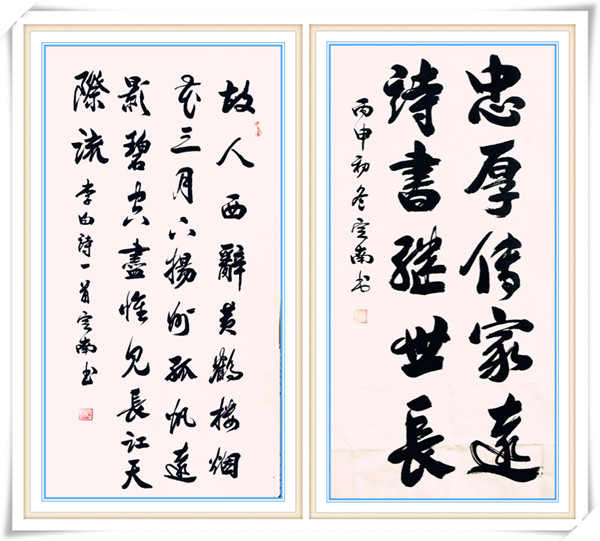 故人西辭黄鶴楼烟
花三月下揚州孤帆遠
影碧空盡惟見長江天
際流 李白詩一首 南书
忠厚传家遠
詩書继世長
丙申初冬 南书